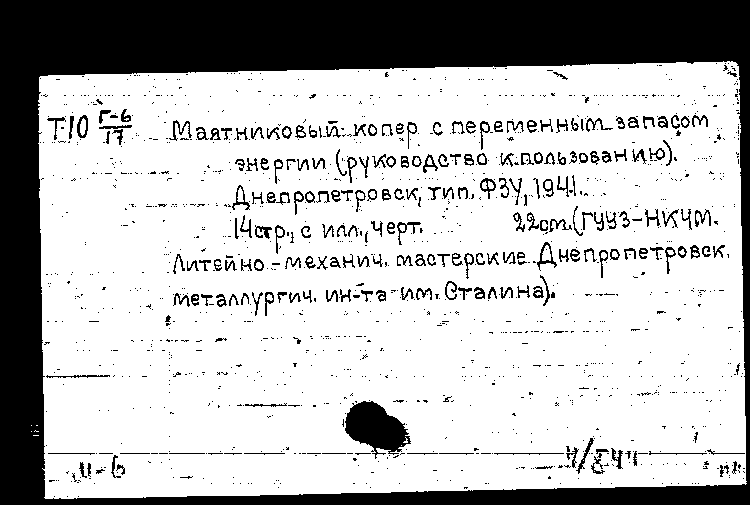 Т10 Г-6/17 Маятниковый копер с переменным запасом
энергии (руководство к пользованию).
Днепропетровск, тип. ФЗУ, 1941.
14стр., с илл., черт. 22см. (ГУУЗ-НКЧМ.
Литейно-механич. мастерские Днепропетровск.
металлургич. ин-та им. Сталина).
И-6